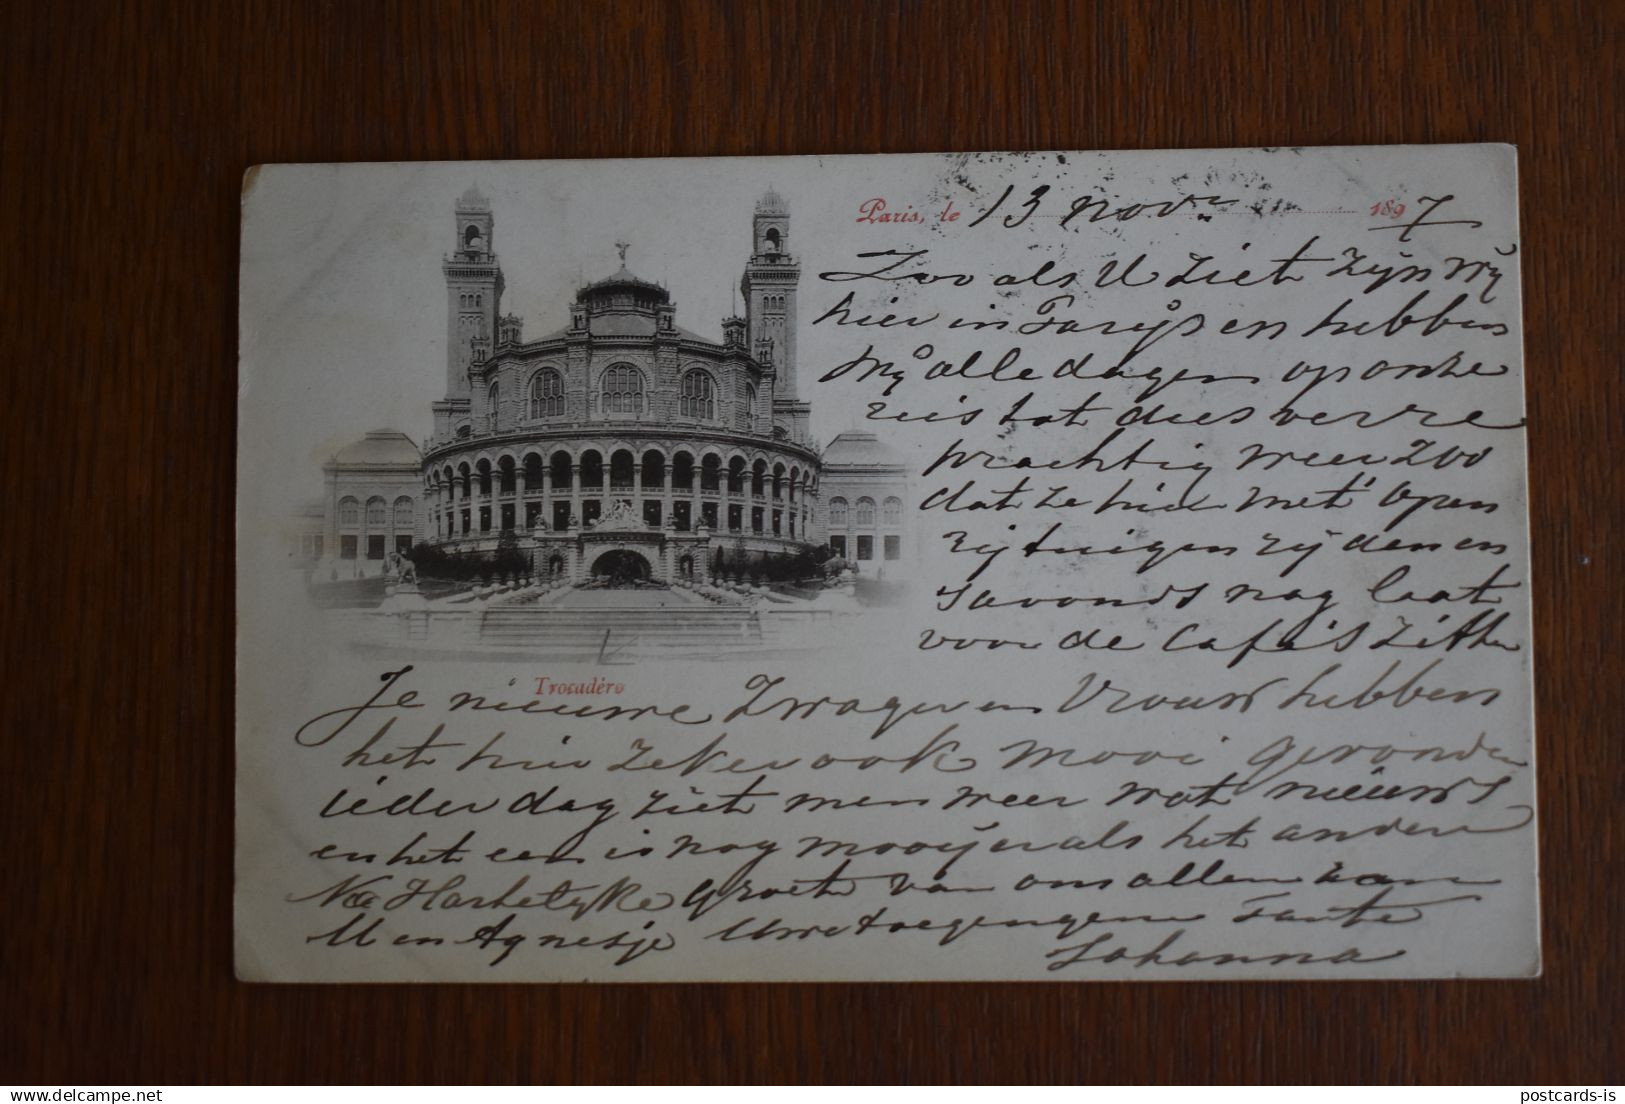 Paris, le 13 novr 1897
Zoo als U ziet zijn wij
hier in Parijs en hebben
wij alle dagen op onze
reis tot dus verre
prachtig weer zoo
dat ze hier met open
rijtuigen rijden en
savonds nog laat
voor de Cafés zitten
Trocadéro
Je nieuwe Zwager en Vrouw hebben
het hier zeker ook mooi gevonden
ieder dag ziet men weer wat nieuws
en het een is nog mooijer als het andere
Na Hartelyke groeten van ons allen aan
U en Agnesje Uwe toegenegen Tante
Johanna
postcards-is